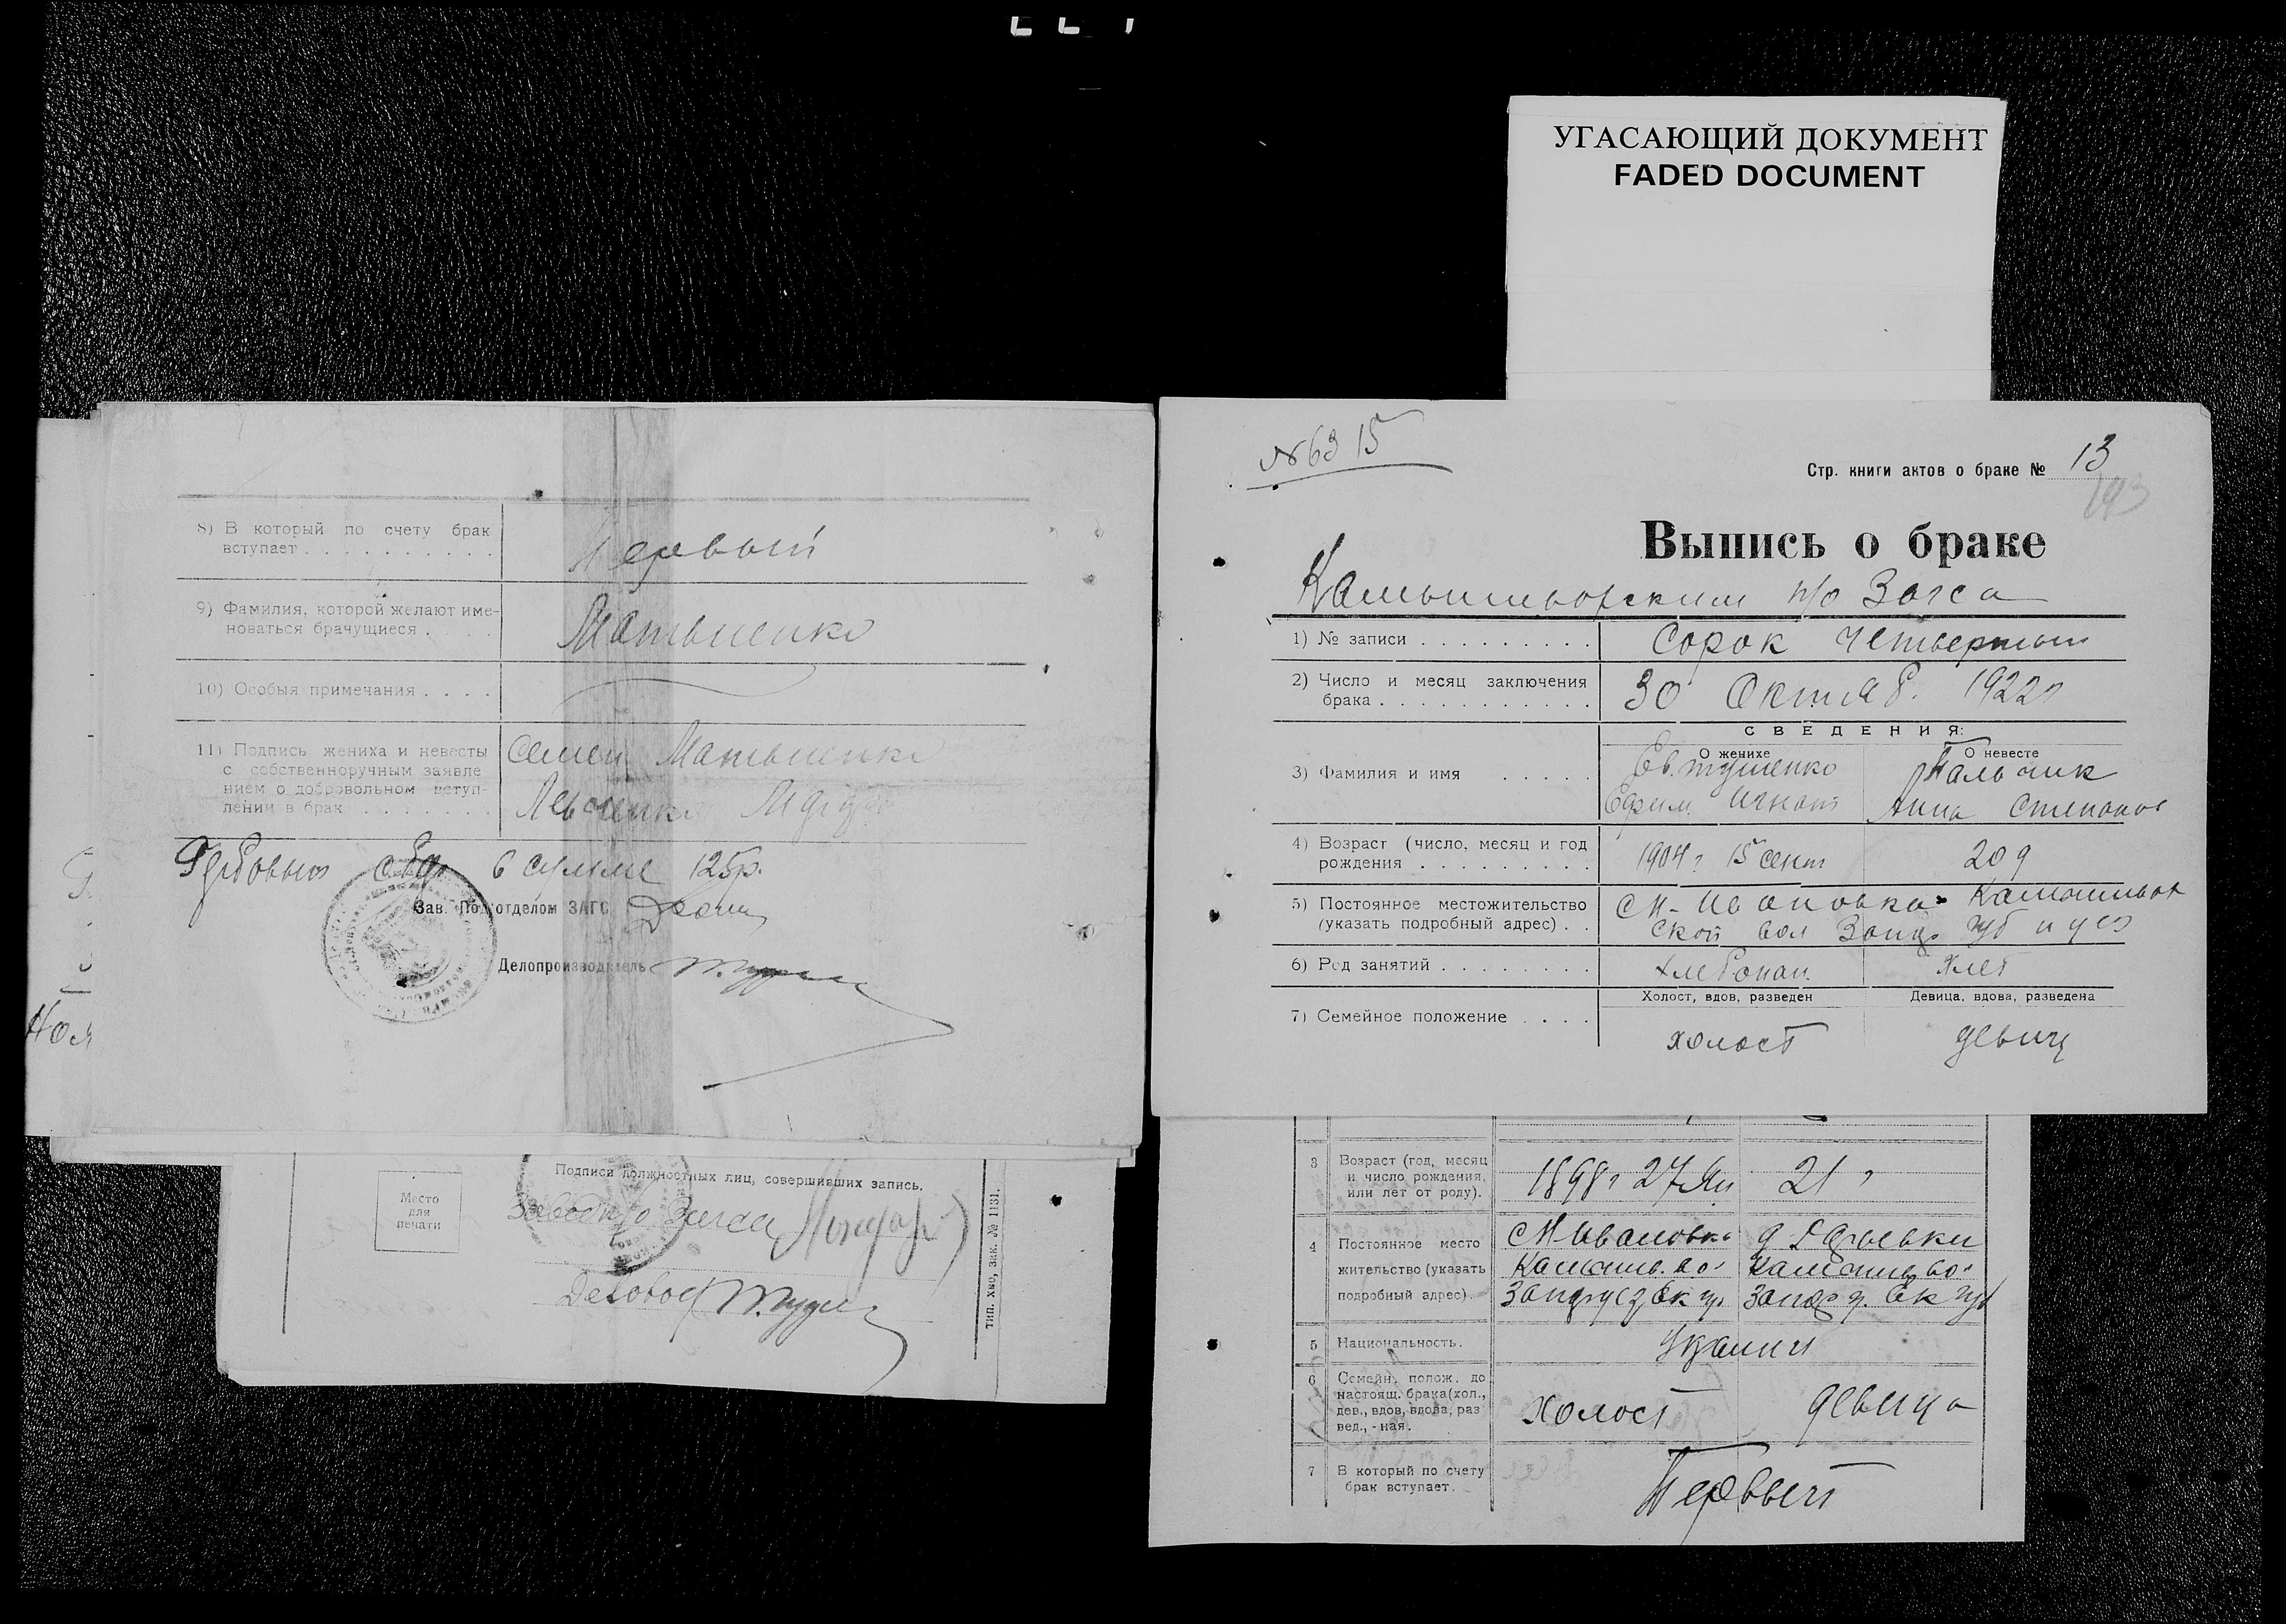 УГАСАЮЩИЙ ДОКУМЕНТ
FADED DOCUMENT
8) В который по счету брак
вступает . . . . . . . . . .
Первый
9) Фамилия, которой желают име-
новаться брачущиеся . . . .
Матвиенко
10) Особыя примечания . . . .
11) Подпись жениха и невесты
с собственноручным заявле
нием о добровольном вступ-
лении в брак . . . . . . .
Семен Матвиенко
Левченко
Гербовый сбор в сумме 125р.
Зав. Подотделом ЗАГС
Делопроизводитель
Ноя
Место
для
печати
Подписи должностных лиц, совершивших запись.
Завед п/о Загса
Деловод
тип. хко, зак. № 1131.
№ 63 15
Стр. книги актов о браке № 13
193
Выпись о браке
п/о Загса
1) № записи . . . . . . . . .
Сорок четвертый
2) Число и месяц заключения
брака . . . . . . . . . . .
30 Октяб. 1922г
СВЕДЕНИЯ:
О женихе
О невесте
3) Фамилия и имя . . . . .
Евтушенко
Пальчик
Ефим Игнат
Анна Степанов
4) Возраст (число, месяц и год
рождения . . . . . . . . .
1904г 15 сент
20 л
5) Постоянное местожительство
(указать подробный адрес) . .
М-Ивановка Камышеват
ской вол Запор губ и уез
6) Род занятий . . . . . . . .
хлебопаш.
хлеб
Холост, вдов, разведен
Девица, вдова, разведена
7) Семейное положение . . . .
холост
девиц
3
Возраст (год, месяц
и число рождения,
или лет от роду).
1898г 27 Ян
21 г
4
Постоянное место
жительство (указать
подробный адрес).
М-Ивановка
Камышев. во.
Запор уез Ек гу.
5
Национальность.
6
Семейн. полож. до
настоящ. брака (хол.,
дев., вдов, вдова, раз
вед., - ная.
холост
девица
7
В который по счету
брак вступает.
Первый